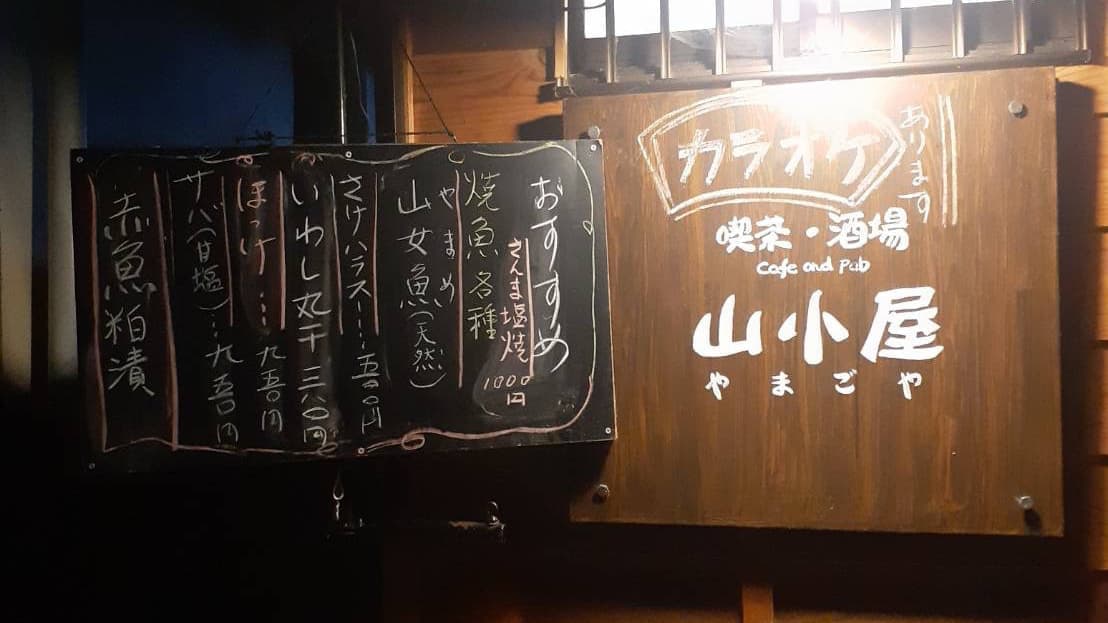 おすすめ
さんま塩焼
1000円
焼魚各種
やまめ
山女魚(天然)
さけハラス…五〇〇円
いわし丸干三八〇円
ほっけ…九五〇円
サバ(甘塩)…九五〇円
赤魚粕漬
カラオケ
あります
喫茶・酒場
Cafe and Pub
山小屋
やまごや